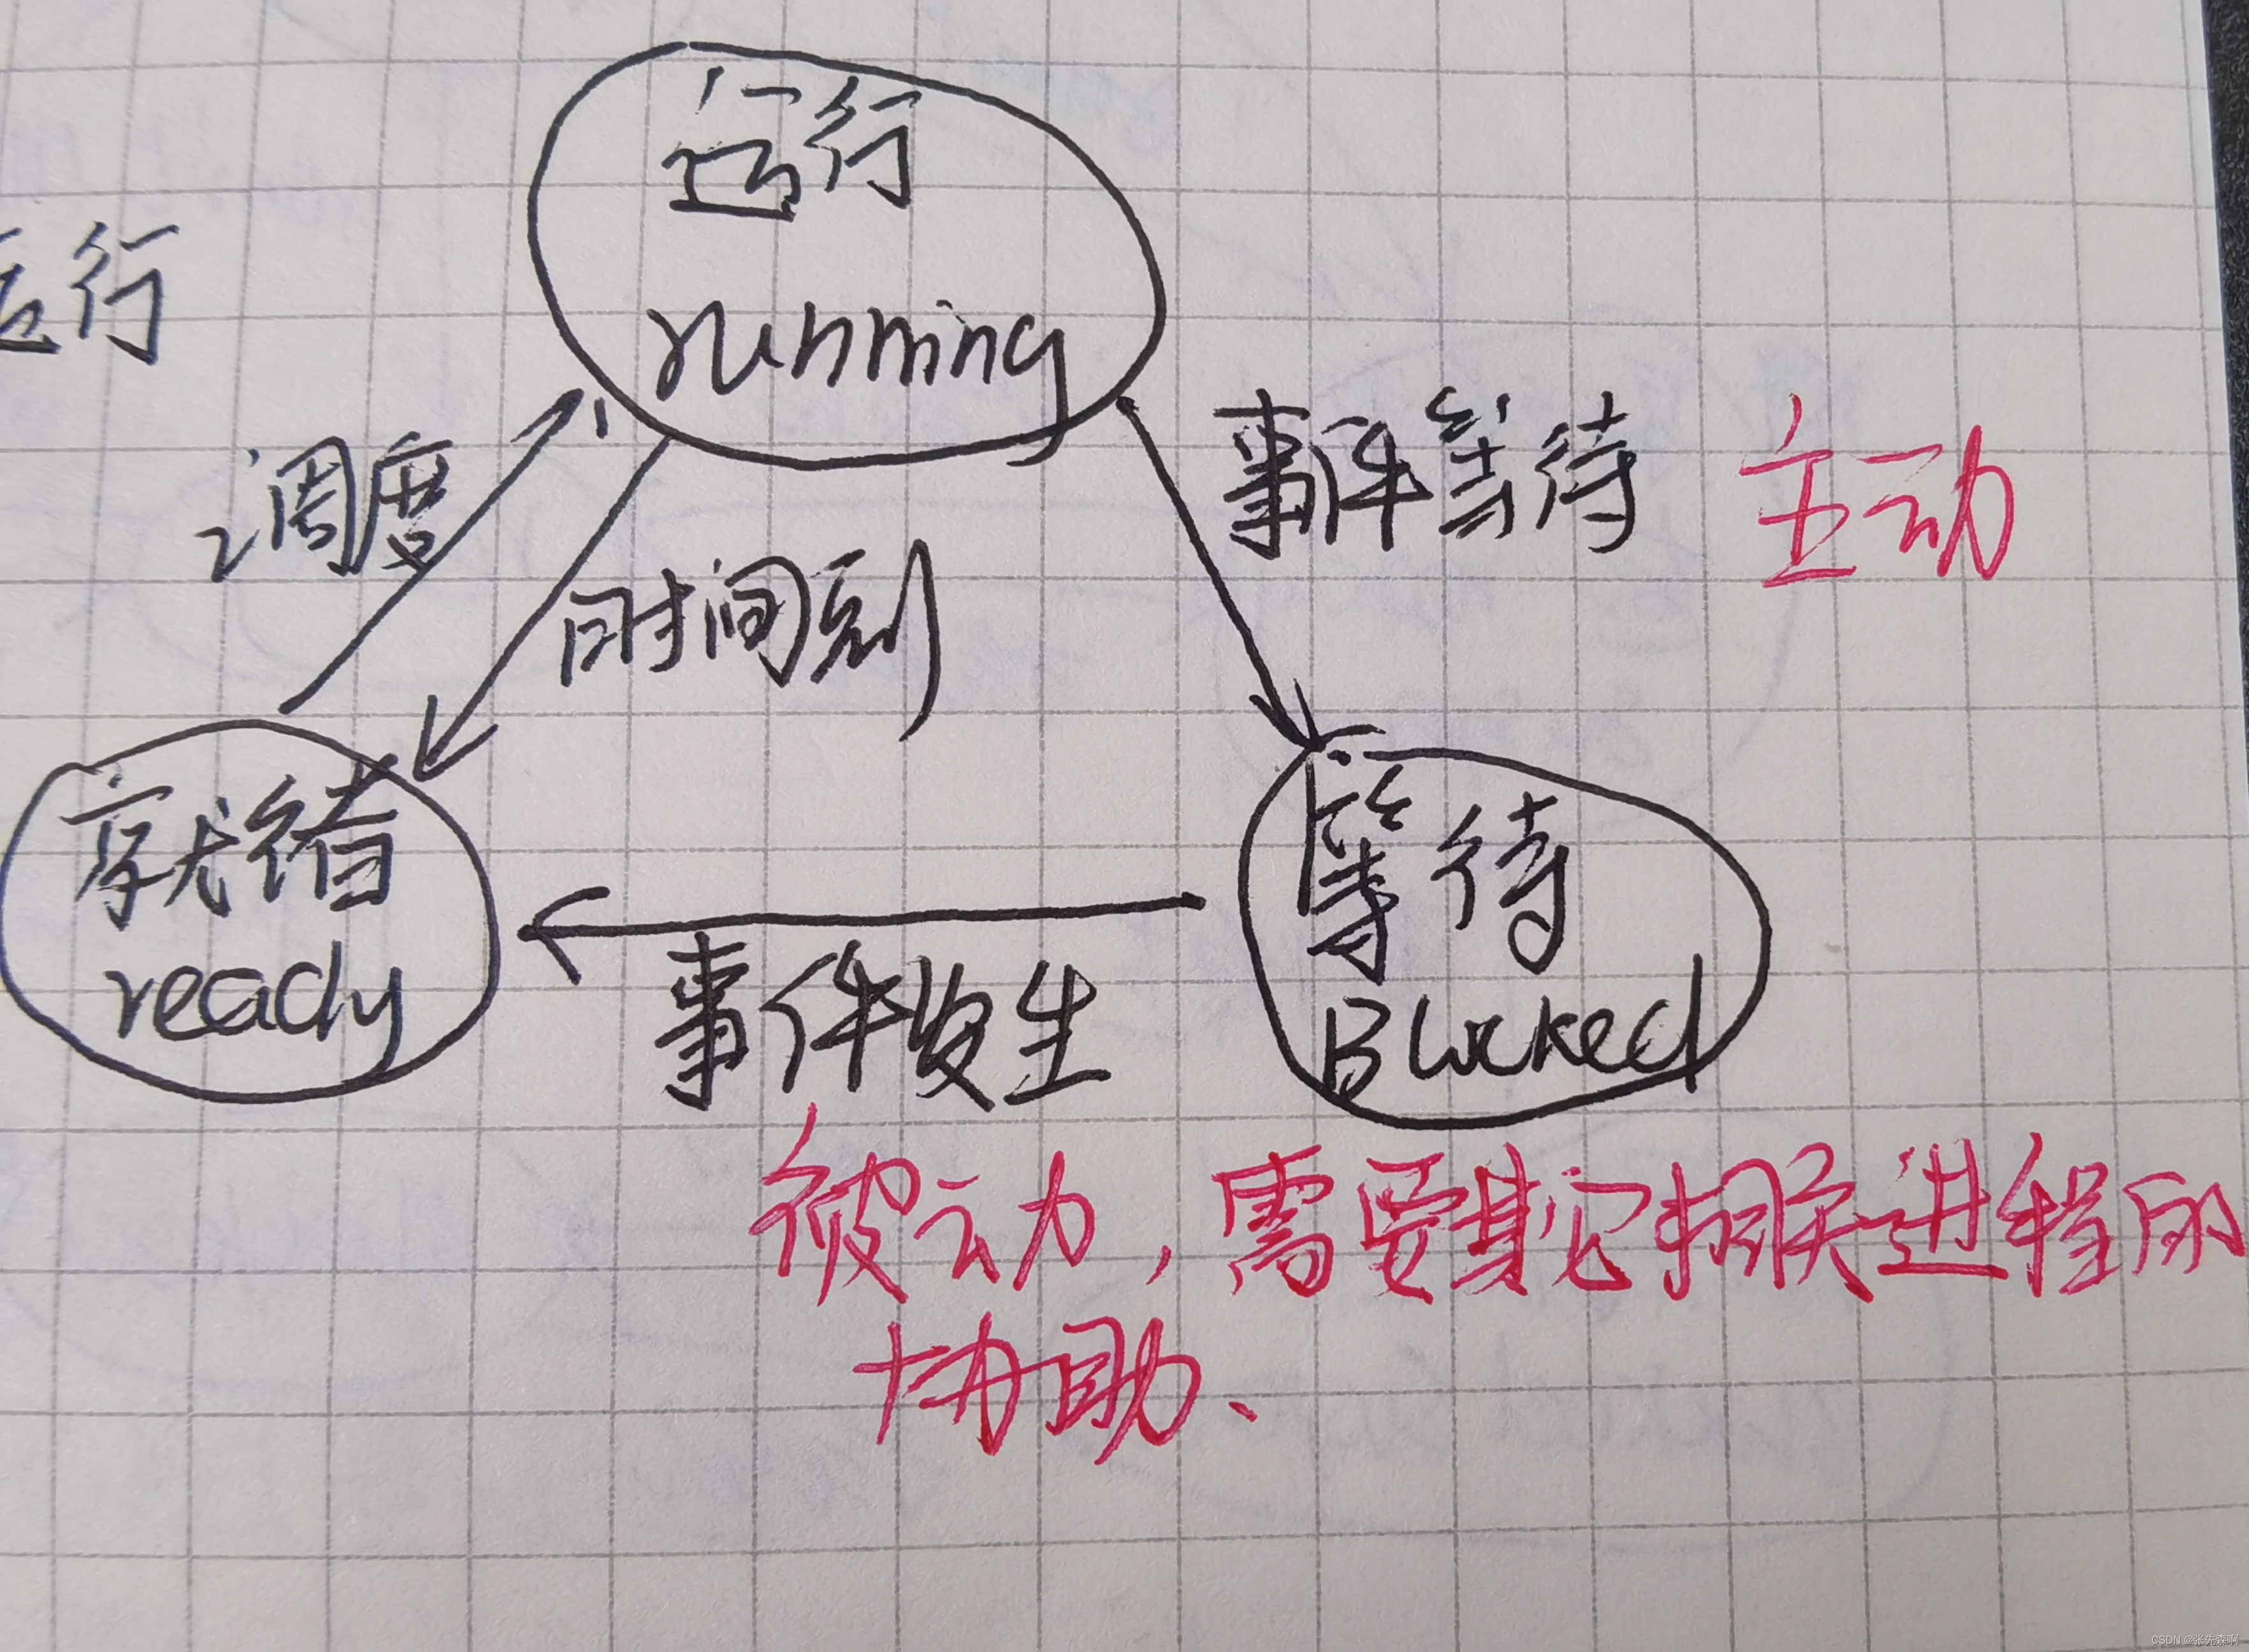 运行
running
运行
调度
时间到
事件等待 主动
就绪
ready
等待
Blocked
事件发生
被动，需要其它相关进程的
协助、
CSDN @张先森啊